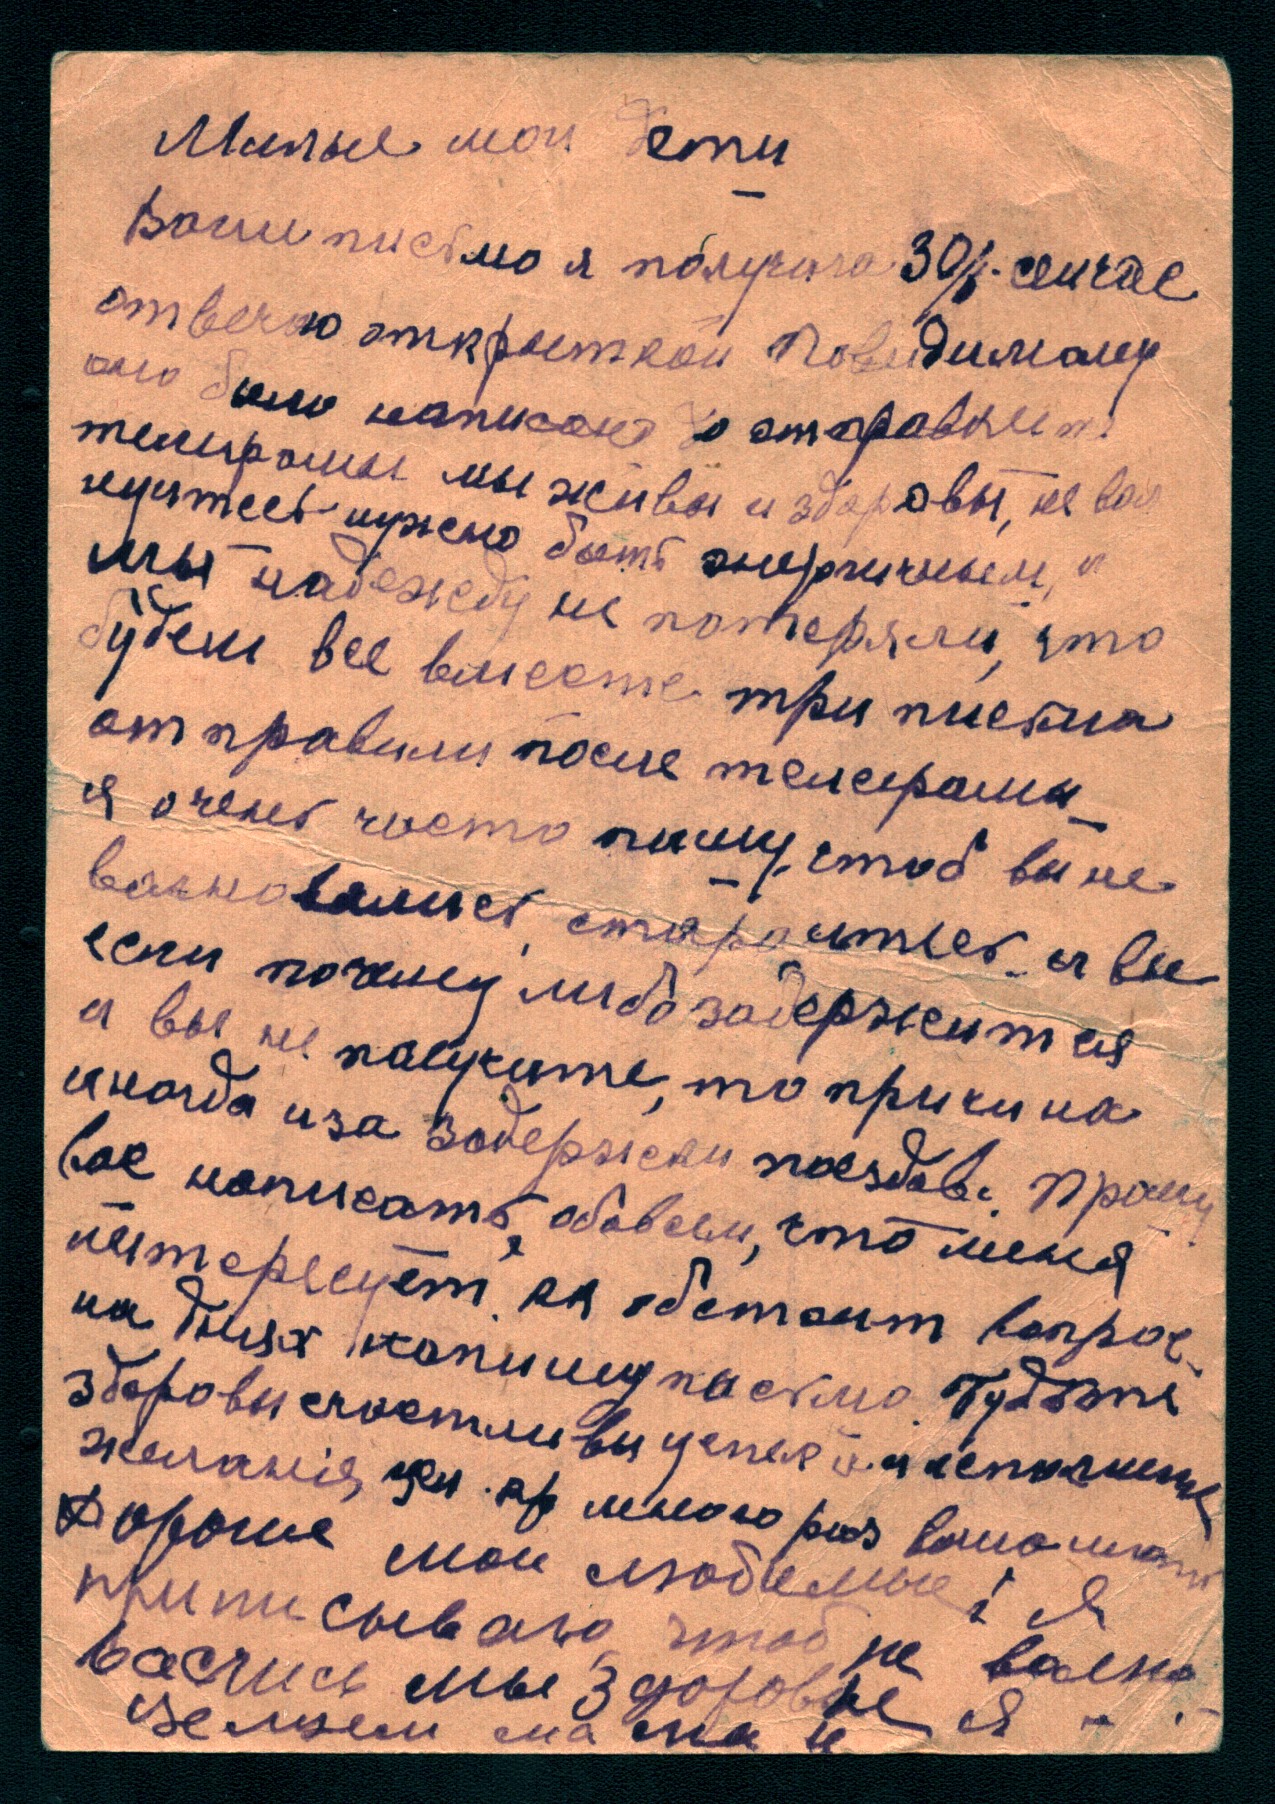 Милые мои дети
Ваши письмо я получила 30/ сейчас
отвечаю открыткой Повидимому
оно было написано до отправки
телеграмы мы живы и здоровы, не вол
нуйтесь нужно быть энергичным, и
мы надежду не потеряли, что
будем все вместе три письма
отправили после телеграмы
я очень часто пишу, чтоб вы не
валновались, старайтесь и вы
если почему либо задержится
и вы не получите, то причина
иногда иза задержки поездов. Прошу
вас написать, обовсем, что меня
интересует, как обстоит вопрос
на днях напишу письмо. Будьте
здоровы счастливы успех и исполнение
желания, цел. кр много раз ваша мать
Дорогие мои любимые! Я
приписываю чтоб не вално
вались мы здоровые я
Целуем мама и